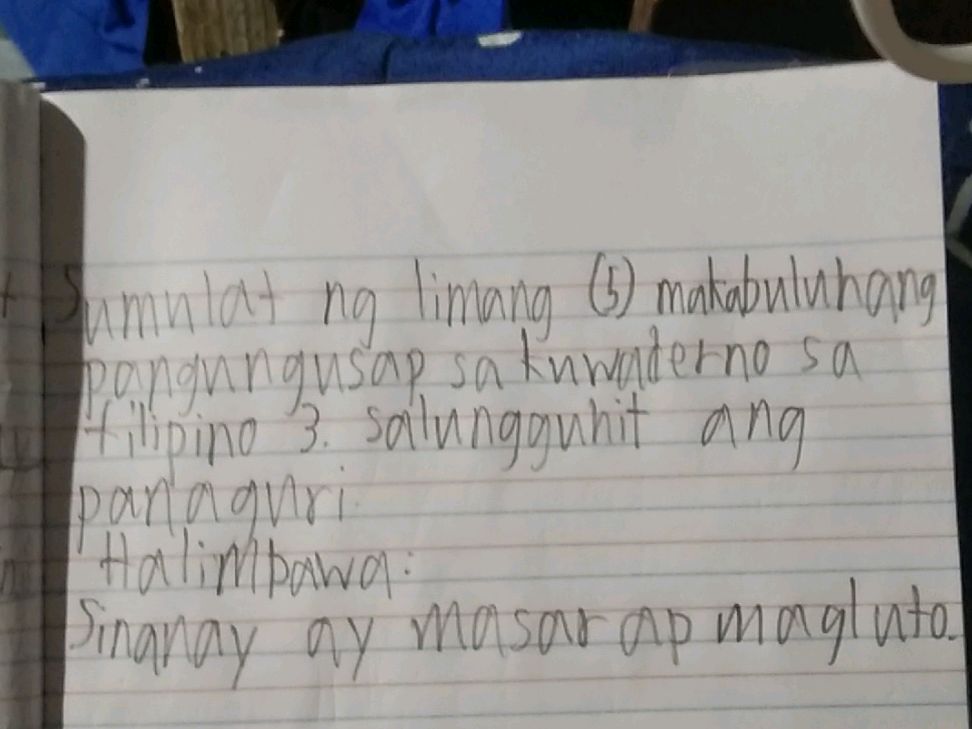 Sumulat ng limang (5) makabuluhang
pangungusap sa kuwaderno sa
filipino 3. salungguhit ang
panaguri.
Halimbawa:
Sinanay ay masarap magluto.